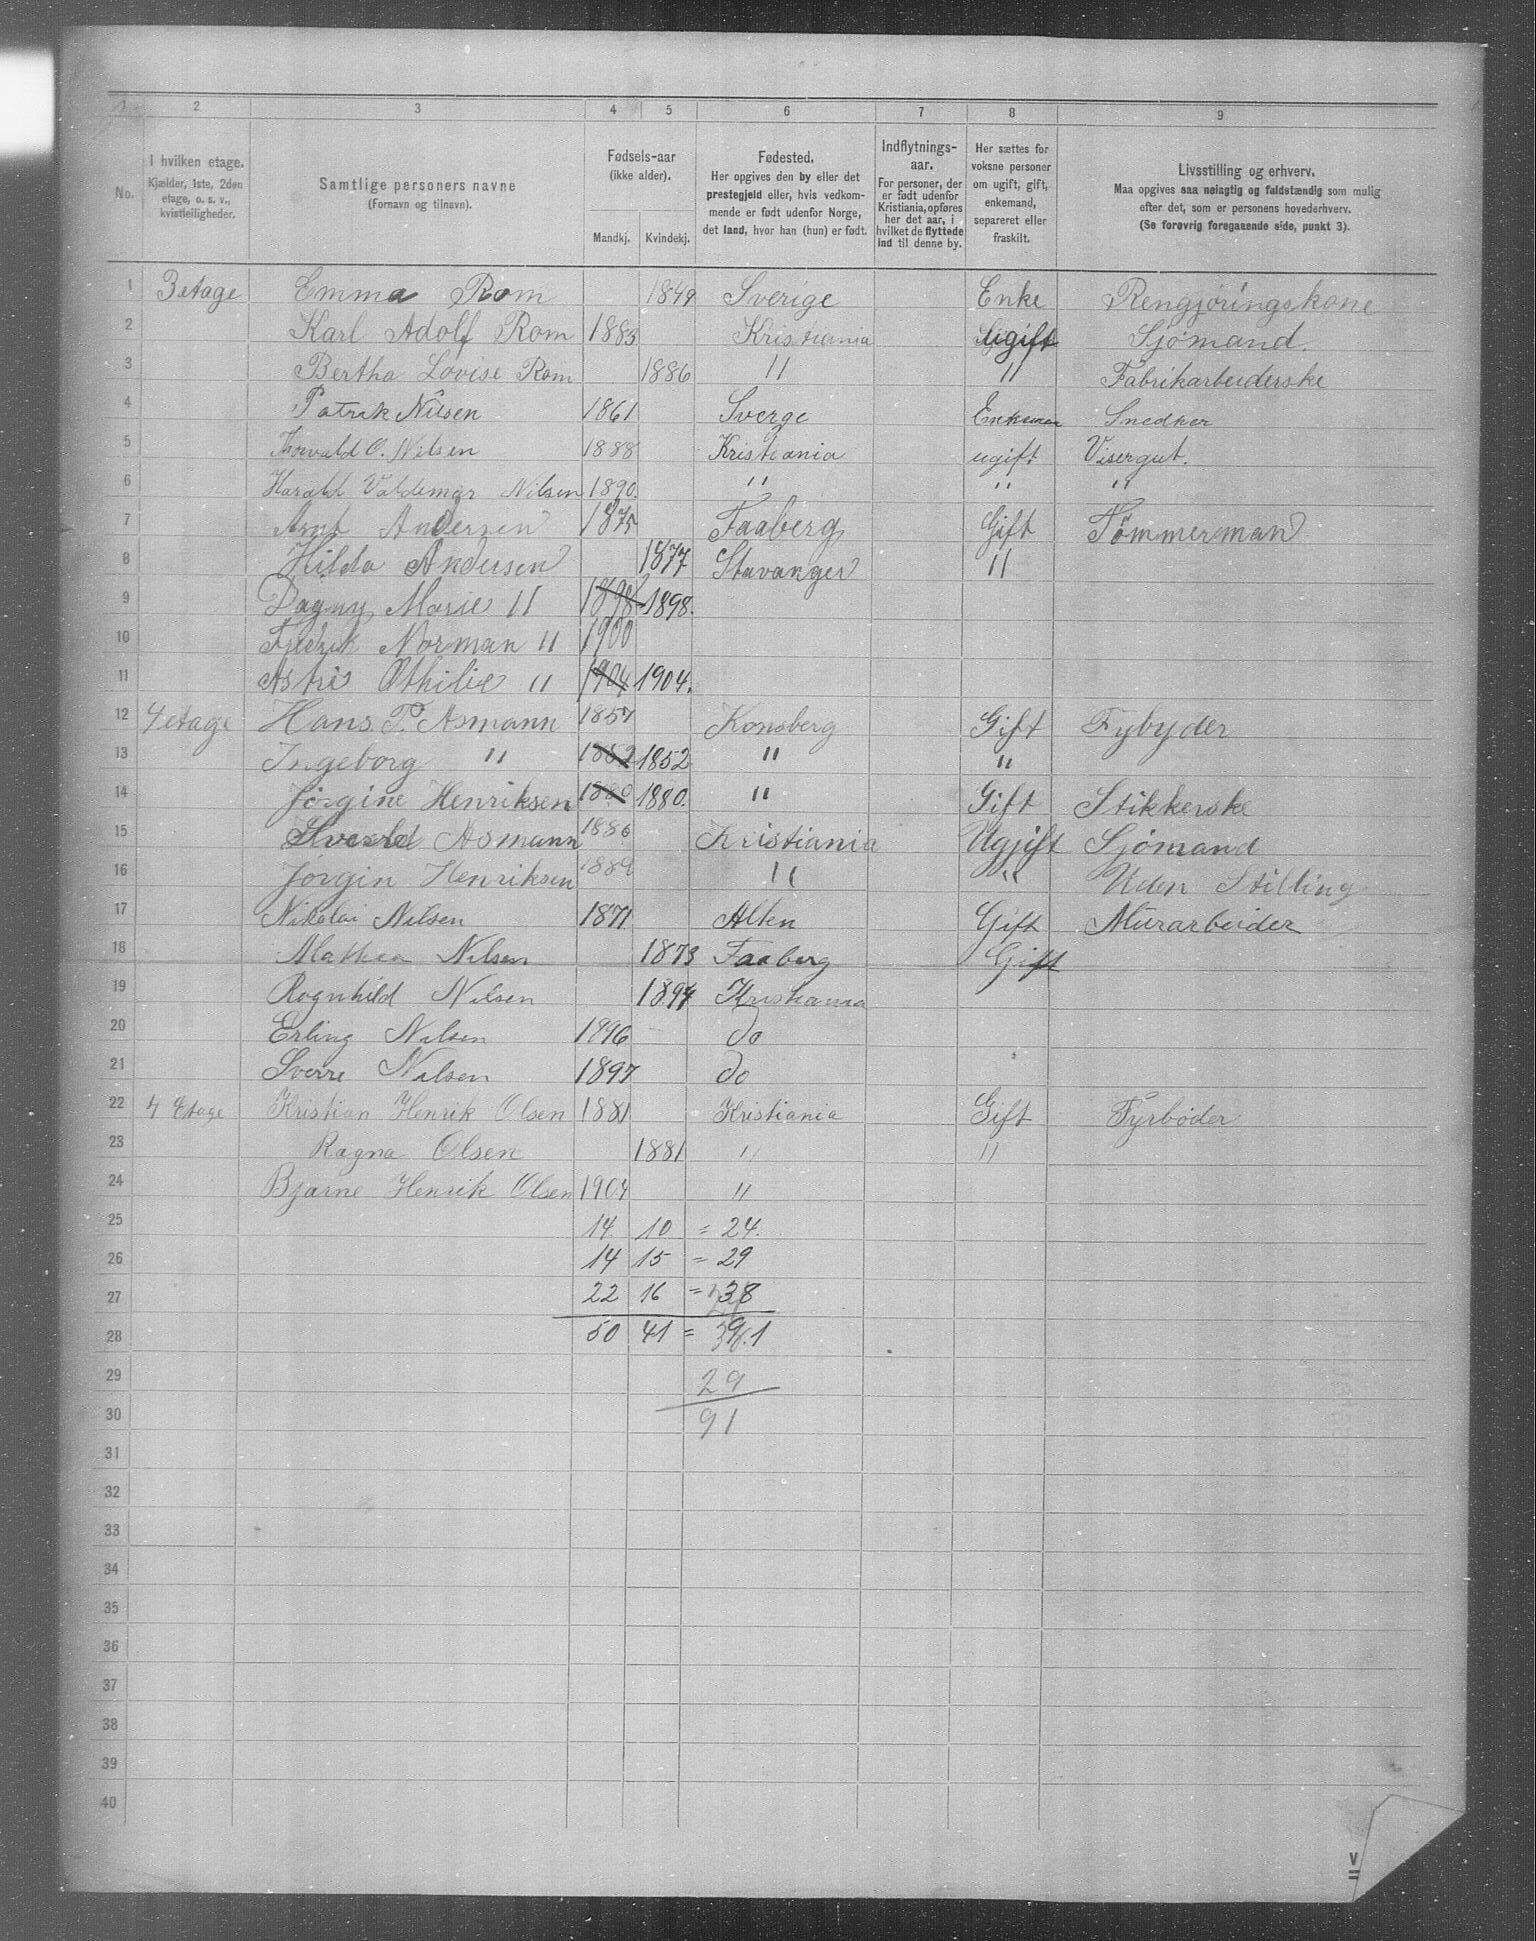 1 2 3 4 5 6 7 8 9
No.
I hvilken etage.
Kjælder, 1ste, 2den
etage, o. s. v.,
kvistleiligheder.
Samtlige personers navne
(Fornavn og tilnavn).
Fødsels-aar
(ikke alder).
Mandkj. Kvindekj.
Fødested.
Her opgives den by eller det
prestegjeld eller, hvis vedkom-
mende er født udenfor Norge,
det land, hvor han (hun) er født.
Indflytnings-
aar.
For personer, der
er født udenfor
Kristiania, opføres
her det aar, i
hvilket de flyttede
ind til denne by.
Her sættes for
voksne personer
om ugift, gift,
enkemand,
separeret eller
fraskilt.
Livsstilling og erhverv.
Maa opgives saa nøiagtig og fuldstændig som mulig
efter det, som er personens hovederhverv.
(Se forøvrig foregaaende side, punkt 3).
1 3 etage Emma Rom 1849 Sverige Enke Rengjøringskone
2 Karl Adolf Rom 1883 Kristiania ugift Sjømand.
3 Bertha Lovise Rom 1886 " " Fabrikarbeiderske
4 Patrik Nilsen 1861 Sverge Enkeman Snedker
5 Thorvald O. Nilsen 1888 Kristiania ugift Visergut.
6 Harald Valdemar Nilsen 1890. " " "
7 Arnt Andersen 1875 Faaberg Gift Tømmerman
8 Hilda Andersen 1877 Stavanger "
9 Dagny Marie " 1898 1898.
10 Fredrik Norman " 1900
11 Astri Othilie " 1904 1904.
12 4 etage Hans P. Asmann 1857 Konsberg Gift Fybyder
13 Ingeborg " 1852 1852 " "
14 Jørgine Henriksen 1880 1880. " Gift Stikkerske
15 Asmann 1886 Kristiania Ugjift Sjømand
16 Jørgin Henriksen 1889 " " Uden Stilling
17 Nikolai Nilsen 1871 Alten Gift Murarbeider
18 Mathea Nilsen 1873 Faaberg Gift
19 Ragnhild Nilsen 1894 Kristiania
20 Erling Nilsen 1896 do
21 Sverre Nilsen 1897 do
22 4 Etage Kristian Henrik Olsen 1881 Kristiania Gift Fyrbøder
23 Ragna Olsen 1881 " "
24 Bjarne Henrik Olsen 1904 "
25 14 10 = 24.
26 14 15 = 29
27 22 16 = 38
28 50 41 = 91
29 29
30 91
31
32
33
34
35
36
37
38
39
40
V